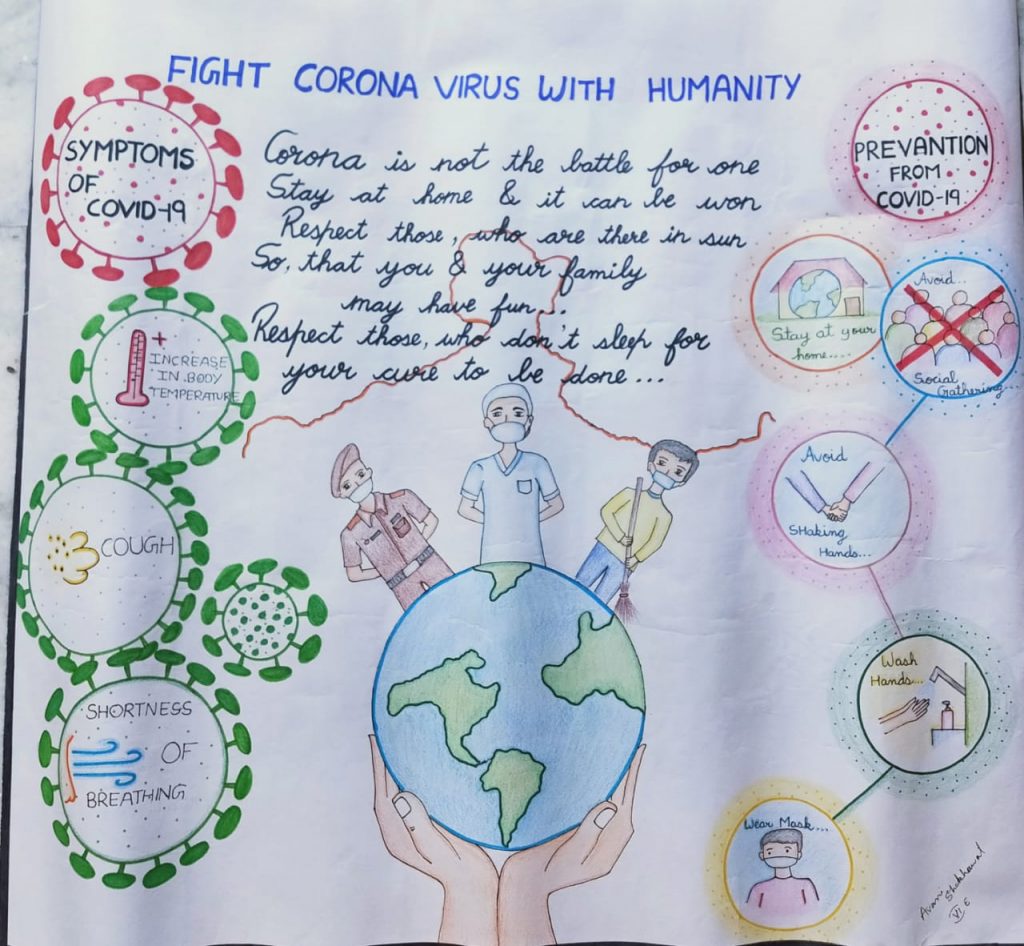 FIGHT CORONA VIRUS WITH HUMANITY
SYMPTOMS
OF
COVID-19
INCREASE
IN BODY
TEMPERATURE
COUGH
SHORTNESS
OF
BREATHING
Corona is not the battle for one
Stay at home & it can be won
Respect those, who are there in sun
So, that you & your family
may have fun...
Respect those, who don't sleep for
your cure to be done...
PREVANTION
FROM
COVID-19
Stay at your
home....
Avoid..
Social
Gathering...
Avoid
SHaking
Hands...
Wash
Hands...
Wear Mask...
Avani
VI E